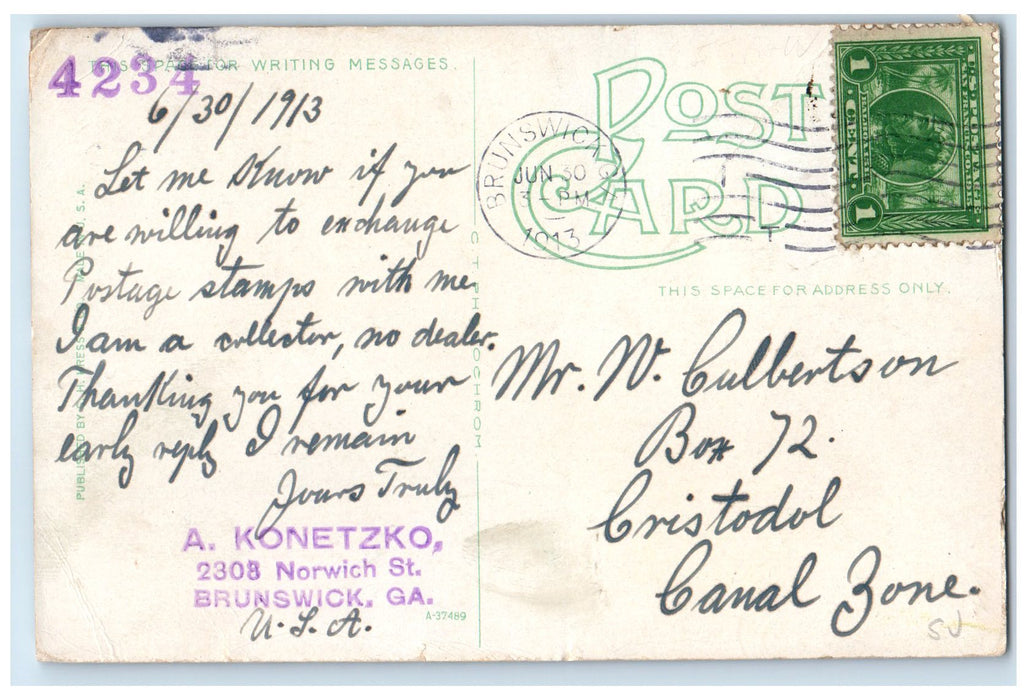 4234
THIS SPACE FOR WRITING MESSAGES.
6/30/1913
Let me Know if you
are willing to exchange
Postage stamps with me.
I am a collector, no dealer.
Thanking you for your
early reply I remain
Yours Truly
A. KONETZKO,
2308 Norwich St.
BRUNSWICK, GA.
U.S.A.
A-37489
PUBLISHED BY
C T PHOTOCHROM
POST
CARD
BRUNSWICK GA
JUN 30
3 - PM
1913
U.S. POSTAGE
SAN FRANCISCO
1 CENT 1
THIS SPACE FOR ADDRESS ONLY.
Mr. W. Culbertson
Box 72.
Cristodol
Canal Zone.
SJ